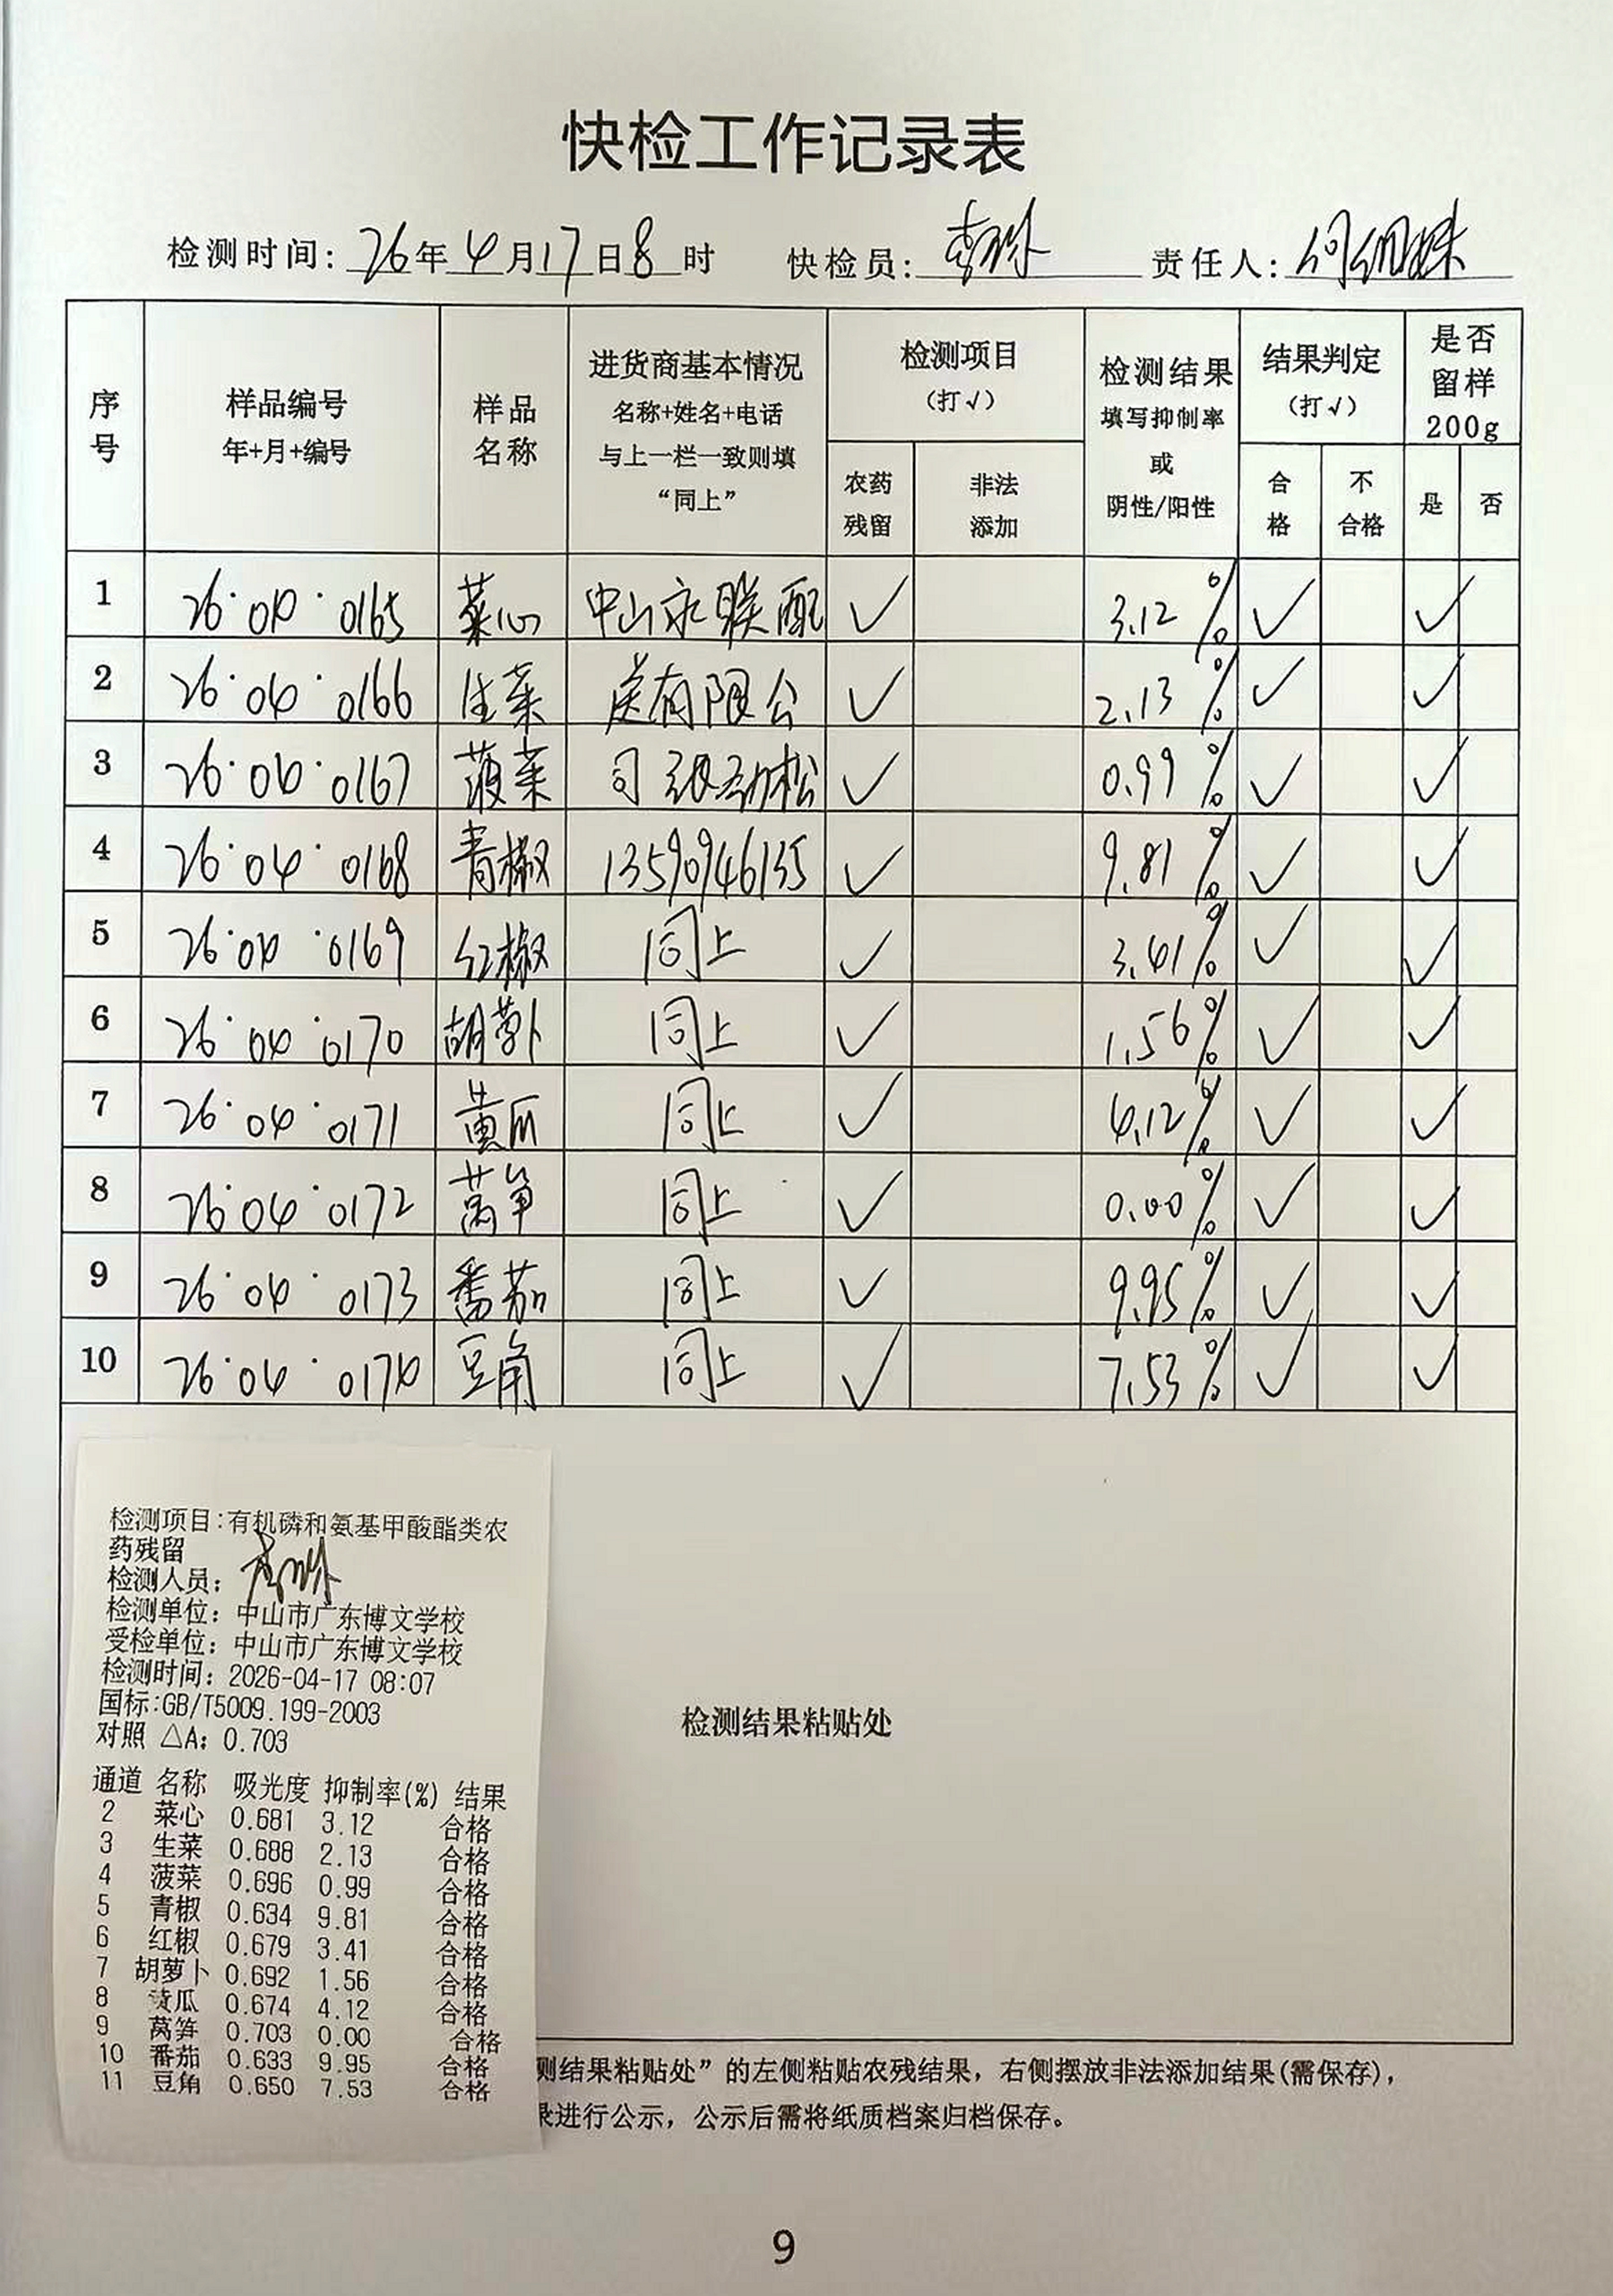 快检工作记录表
检测时间: 26年4月17日8时 快检员: 责任人:
序号 样品编号 年+月+编号 样品名称 进货商基本情况 名称+姓名+电话 与上一栏一致则填“同上” 检测项目 (打√) 农药残留 非法添加 检测结果 填写抑制率或阴性/阳性 结果判定 (打√) 合格 不合格 是否留样200g 是 否
1 26·04·0165 菜心 中山永联配 √ 3.12% √ √
2 26·04·0166 生菜 送有限公 √ 2.13% √ √
3 26·04·0167 菠菜 司 劲松 √ 0.99% √ √
4 26·04·0168 青椒 13590946135 √ 9.81% √ √
5 26·04·0169 红椒 同上 √ 3.41% √ √
6 26·04·0170 胡萝卜 同上 √ 1.56% √ √
7 26·04·0171 黄瓜 同上 √ 4.12% √ √
8 26·04·0172 莴笋 同上 √ 0.00% √ √
9 26·04·0173 番茄 同上 √ 9.95% √ √
10 26·04·0174 豆角 同上 √ 7.53% √ √
检测项目:有机磷和氨基甲酸酯类农
药残留
检测人员:
检测单位: 中山市广东博文学校
受检单位: 中山市广东博文学校
检测时间: 2026-04-17 08:07
国标:GB/T5009.199-2003
对照 △A: 0.703
通道 名称 吸光度 抑制率(%) 结果
2 菜心 0.681 3.12 合格
3 生菜 0.688 2.13 合格
4 菠菜 0.696 0.99 合格
5 青椒 0.634 9.81 合格
6 红椒 0.679 3.41 合格
7 胡萝卜 0.692 1.56 合格
8 黄瓜 0.674 4.12 合格
9 莴笋 0.703 0.00 合格
10 番茄 0.633 9.95 合格
11 豆角 0.650 7.53 合格
检测结果粘贴处
测结果粘贴处”的左侧粘贴农残结果，右侧摆放非法添加结果(需保存)，
录进行公示，公示后需将纸质档案归档保存。
9